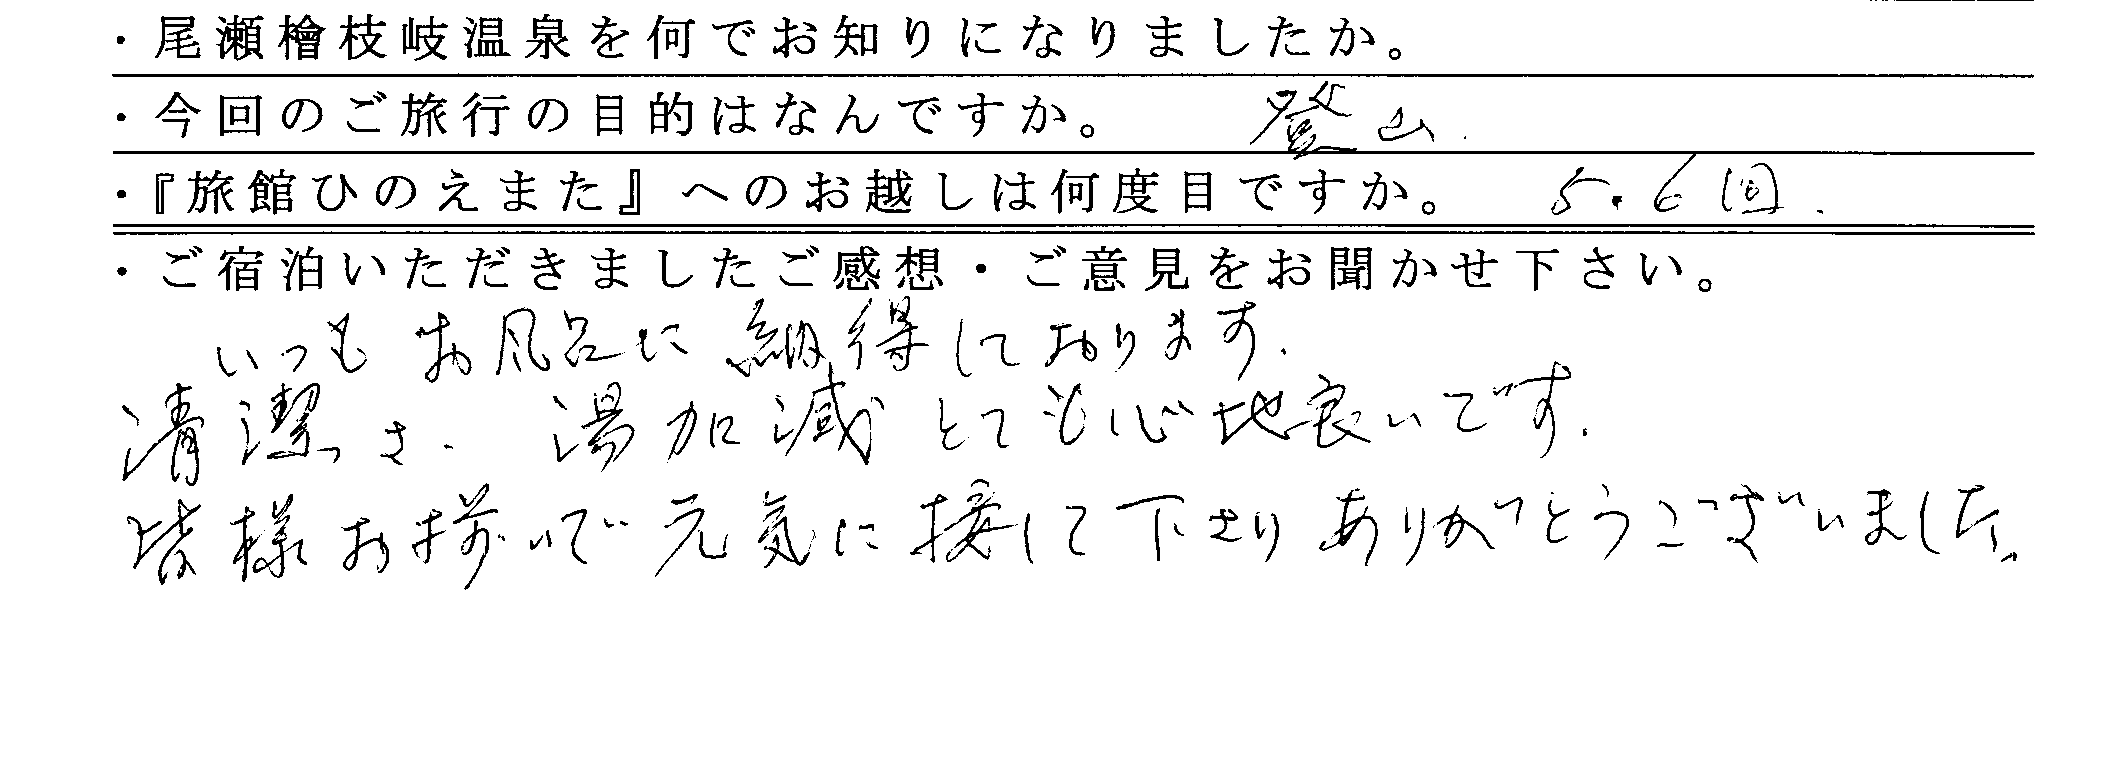 ・尾瀬檜枝岐温泉を何でお知りになりましたか。
・今回のご旅行の目的はなんですか。 登山.
・『旅館ひのえまた』へのお越しは何度目ですか。 5.6回.
・ご宿泊いただきましたご感想・ご意見をお聞かせ下さい。
いつもお風呂に納得しております.
清潔さ. 湯加減とても心地良いです.
皆様お揃いで元気に接して下さりありがとうございました。